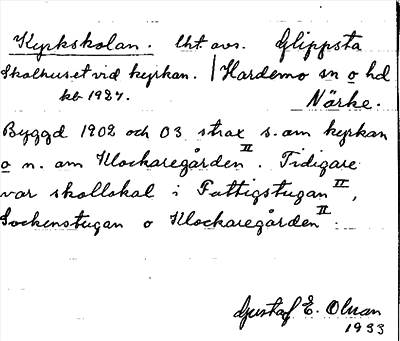 Kyrkskolan. lht. avs. Glippsta
Skolhuset vid kyrkan. / Hardemo sn o hd
kb 1927. Närke.
Byggd 1902 och 03 strax s. om kyrkan
o n. om Klockaregården II. Tidigare
var skollokal i Fattigstugan II,
Sockenstugan o Klockaregården II.
Gustaf E. Olman
1933